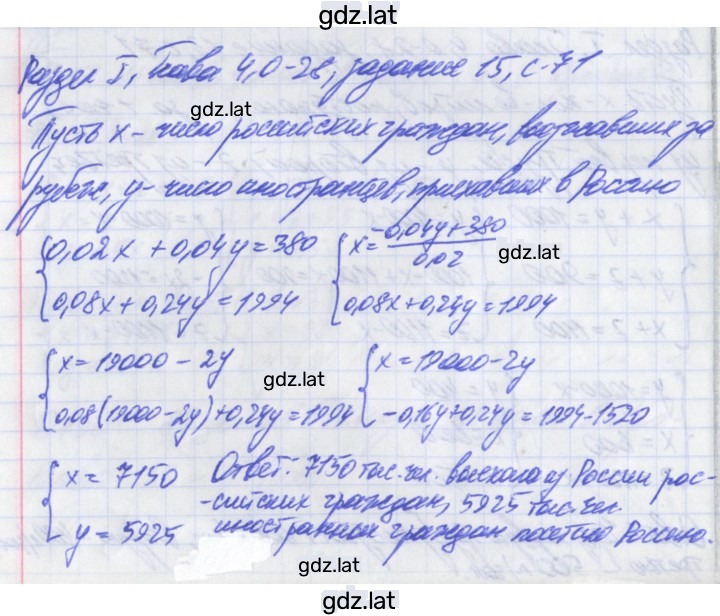 gdz.lat
Раздел I, Глава 4, 0-28, задание 15, с-71
gdz.lat
Пусть x - число российских граждан, выезжавших за
рубеж, y - число иностранцев, приехавших в Россию
{0,02x + 0,04y = 380 {x = (-0,04y + 380)/0,02
gdz.lat
0,08x + 0,24y = 1994 0,08x + 0,24y = 1994
{x = 19000 - 2y {x = 19000 - 2y
gdz.lat
0,08(19000 - 2y) + 0,24y = 1994 -0,16y + 0,24y = 1994 - 1520
{x = 7150 Ответ: 7150 тыс. чел. выехало из России рос-
-сийских граждан, 5925 тыс. чел.
y = 5925 иностранных граждан посетило Россию.
gdz.lat
gdz.lat